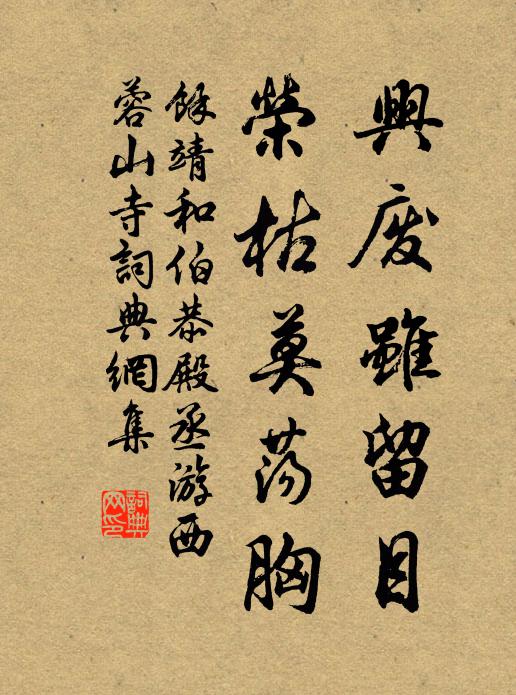 興廢雖留目
榮枯莫蕩胸
餘靖和伯恭殿丞游西
蓉山寺詞典網集
詞典網印